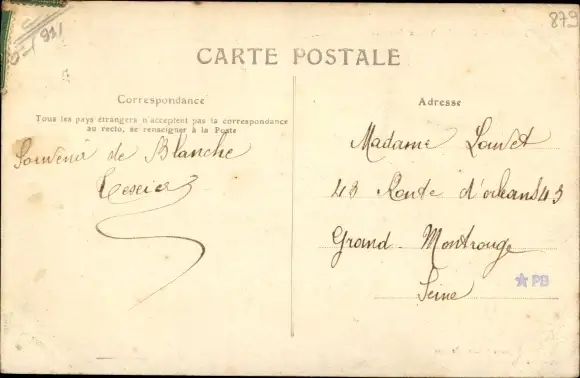 879
91/
CARTE POSTALE
Correspondance
Tous les pays étrangers n'acceptent pas la correspondance
au recto, se renseigner à la Poste
Souvenir de Blanche
Adresse
Madame Louvet
43 Route d'orleans 43
Grand-Montrouge
Seine
PB